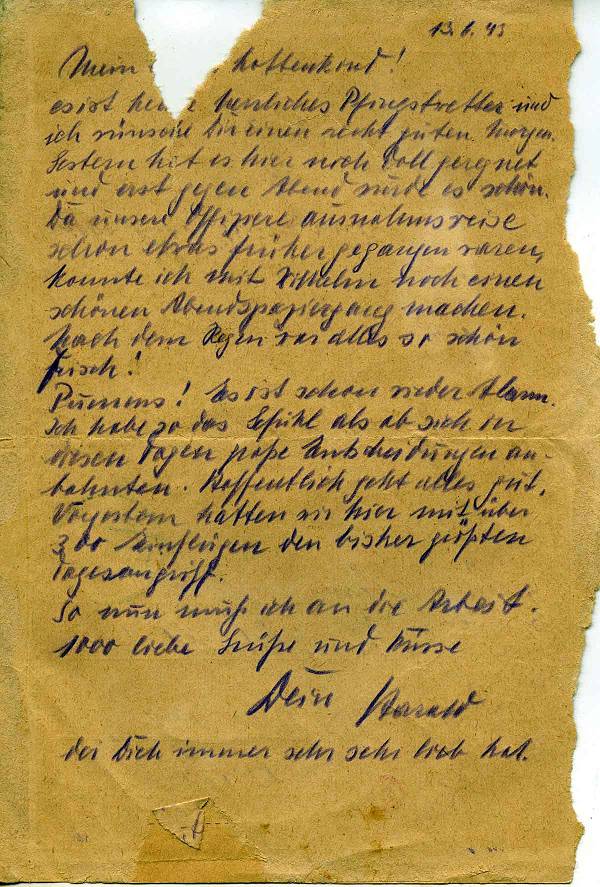 13.6.43
Mein Lottenkind!
es ist heute herrliches Pfingstwetter und
ich wünsche Dir einen recht guten Morgen.
Gestern hat es hier noch doll geregnet
und erst gegen Abend wurde es schön.
Da unsere Offiziere ausnahmsweise
schon etwas früher gegangen waren,
konnte ich mit Wilhelm noch einen
schönen Abendspaziergang machen.
Nach dem Regen war alles so schön
frisch!
Es ist schon wieder Alarm.
Ich habe so das Gefühl als ob sich in
diesen Tagen große Entscheidungen an-
bahnten. Hoffentlich geht alles gut.
Vorgestern hatten wir hier mit über
300 Einflügen den bisher größten
Tagesangriff.
So nun muß ich an die Arbeit.
1000 liebe Grüße und Küsse
Dein Harald
der Dich immer sehr sehr lieb hat.